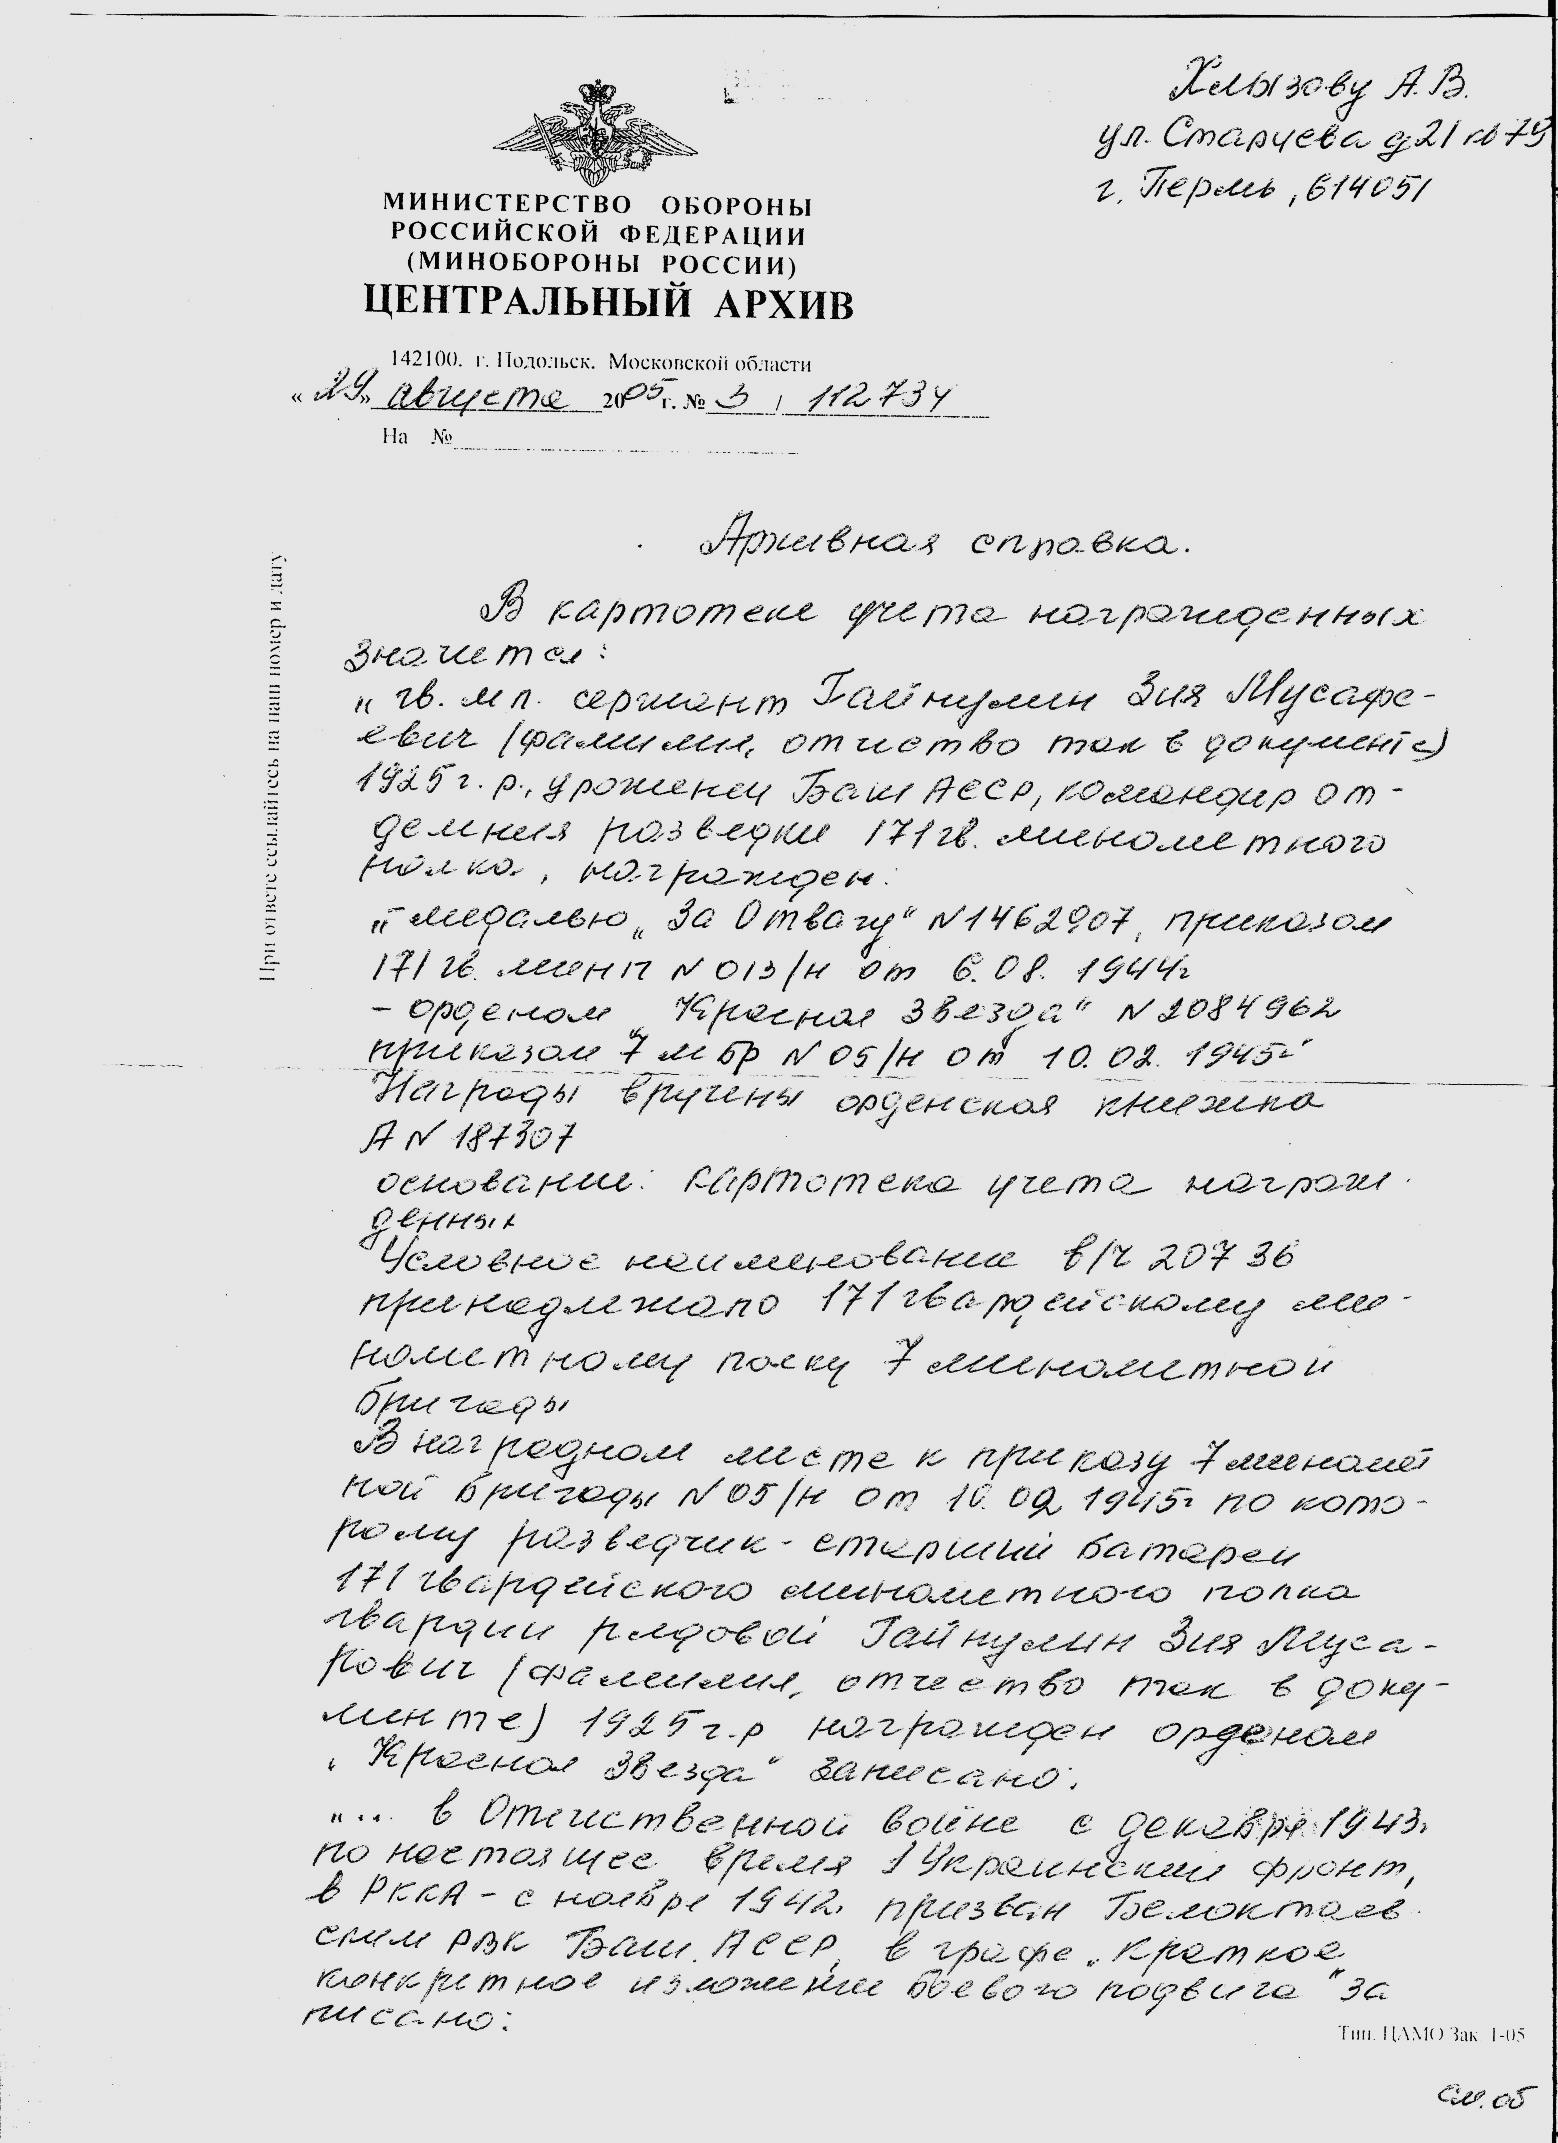 Хлызову А.В.
ул. Старцева д 21 кв 79
г. Пермь, 614051
МИНИСТЕРСТВО ОБОРОНЫ
РОССИЙСКОЙ ФЕДЕРАЦИИ
(МИНОБОРОНЫ РОССИИ)
ЦЕНТРАЛЬНЫЙ АРХИВ
142100. г. Подольск. Московской области
«29» августа 2005 г. № 3 / 112734
На №
При ответе ссылайтесь на наш номер и дату
Архивная справка.
В картотеке учета награжденных
значится:
„гв. мл. сержант Гайнулин Зия Мусафе-
евич (фамилия, отчество так в документе)
1925 г.р., уроженец Баш АССР, командир от-
деления разведки 171 гв. минометного
полка, награжден:
„- медалью „За Отвагу“ N 1462907, приказом
171 гв. мин п N 013/н от 6.08.1944г
- орденом „Красная Звезда“ N 2084962
приказом 7 м бр N 05/н от 10.02.1945г“
Награды вручены орденская книжка
А N 187307
основание: картотека учета награж-
денных
Условное наименование в/ч 20736
принадлежало 171 гвардейскому ми-
нометному полку 7 минометной
бригады
В наградном листе к приказу 7 миномет
ной бригады N 05/н от 10.02.1945г по кото-
рому разведчик-старший батареи
171 гвардейского минометного полка
гвардии рядовой Гайнулин Зия Муса-
рович (фамилия, отчество так в доку-
менте) 1925 г.р награжден орденом
„Красная Звезда“ записано:
„... в Отечественной войне с декабря 1943г
по настоящее время 1 Украинский фронт,
в РККА - с ноября 1942г призван Белокатаев-
ским РВК Баш. АССР, в графе „Краткое
конкретное изложение боевого подвига“ за
писано:
Тип. ЦАМО Зак 1-05
см. об